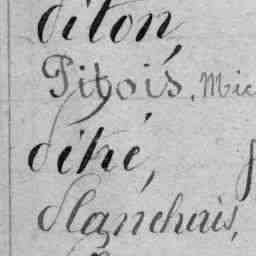 Piton,
Pitois, Mic
Pitré,
Planchais,